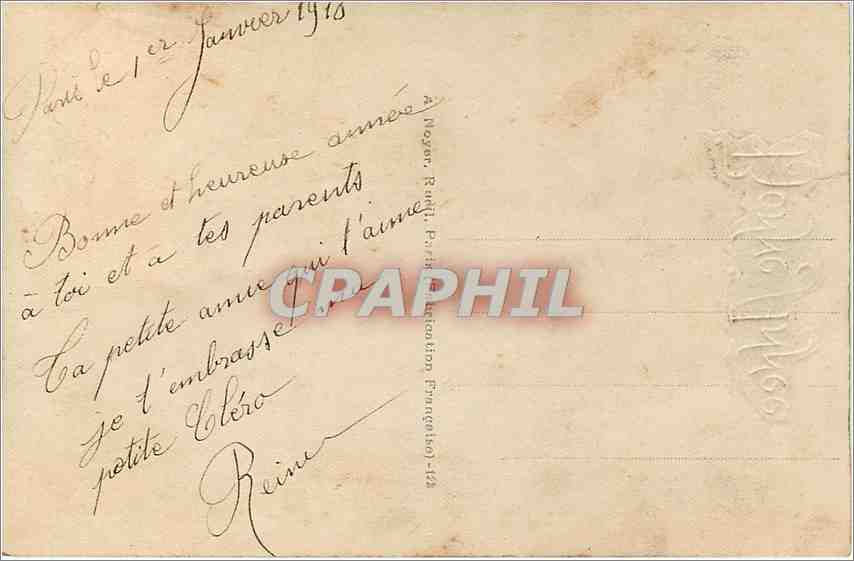 Paris le 1er Janvier 1918
Bonne et heureuse année
à toi et à tes parents
Ta petite amie qui t'aime
je t'embrasse ma
petite Cléro
Reine
A. Noyer, Rueil, Paris (Fabrication Française)-12
CPAPHIL
Bonne Année